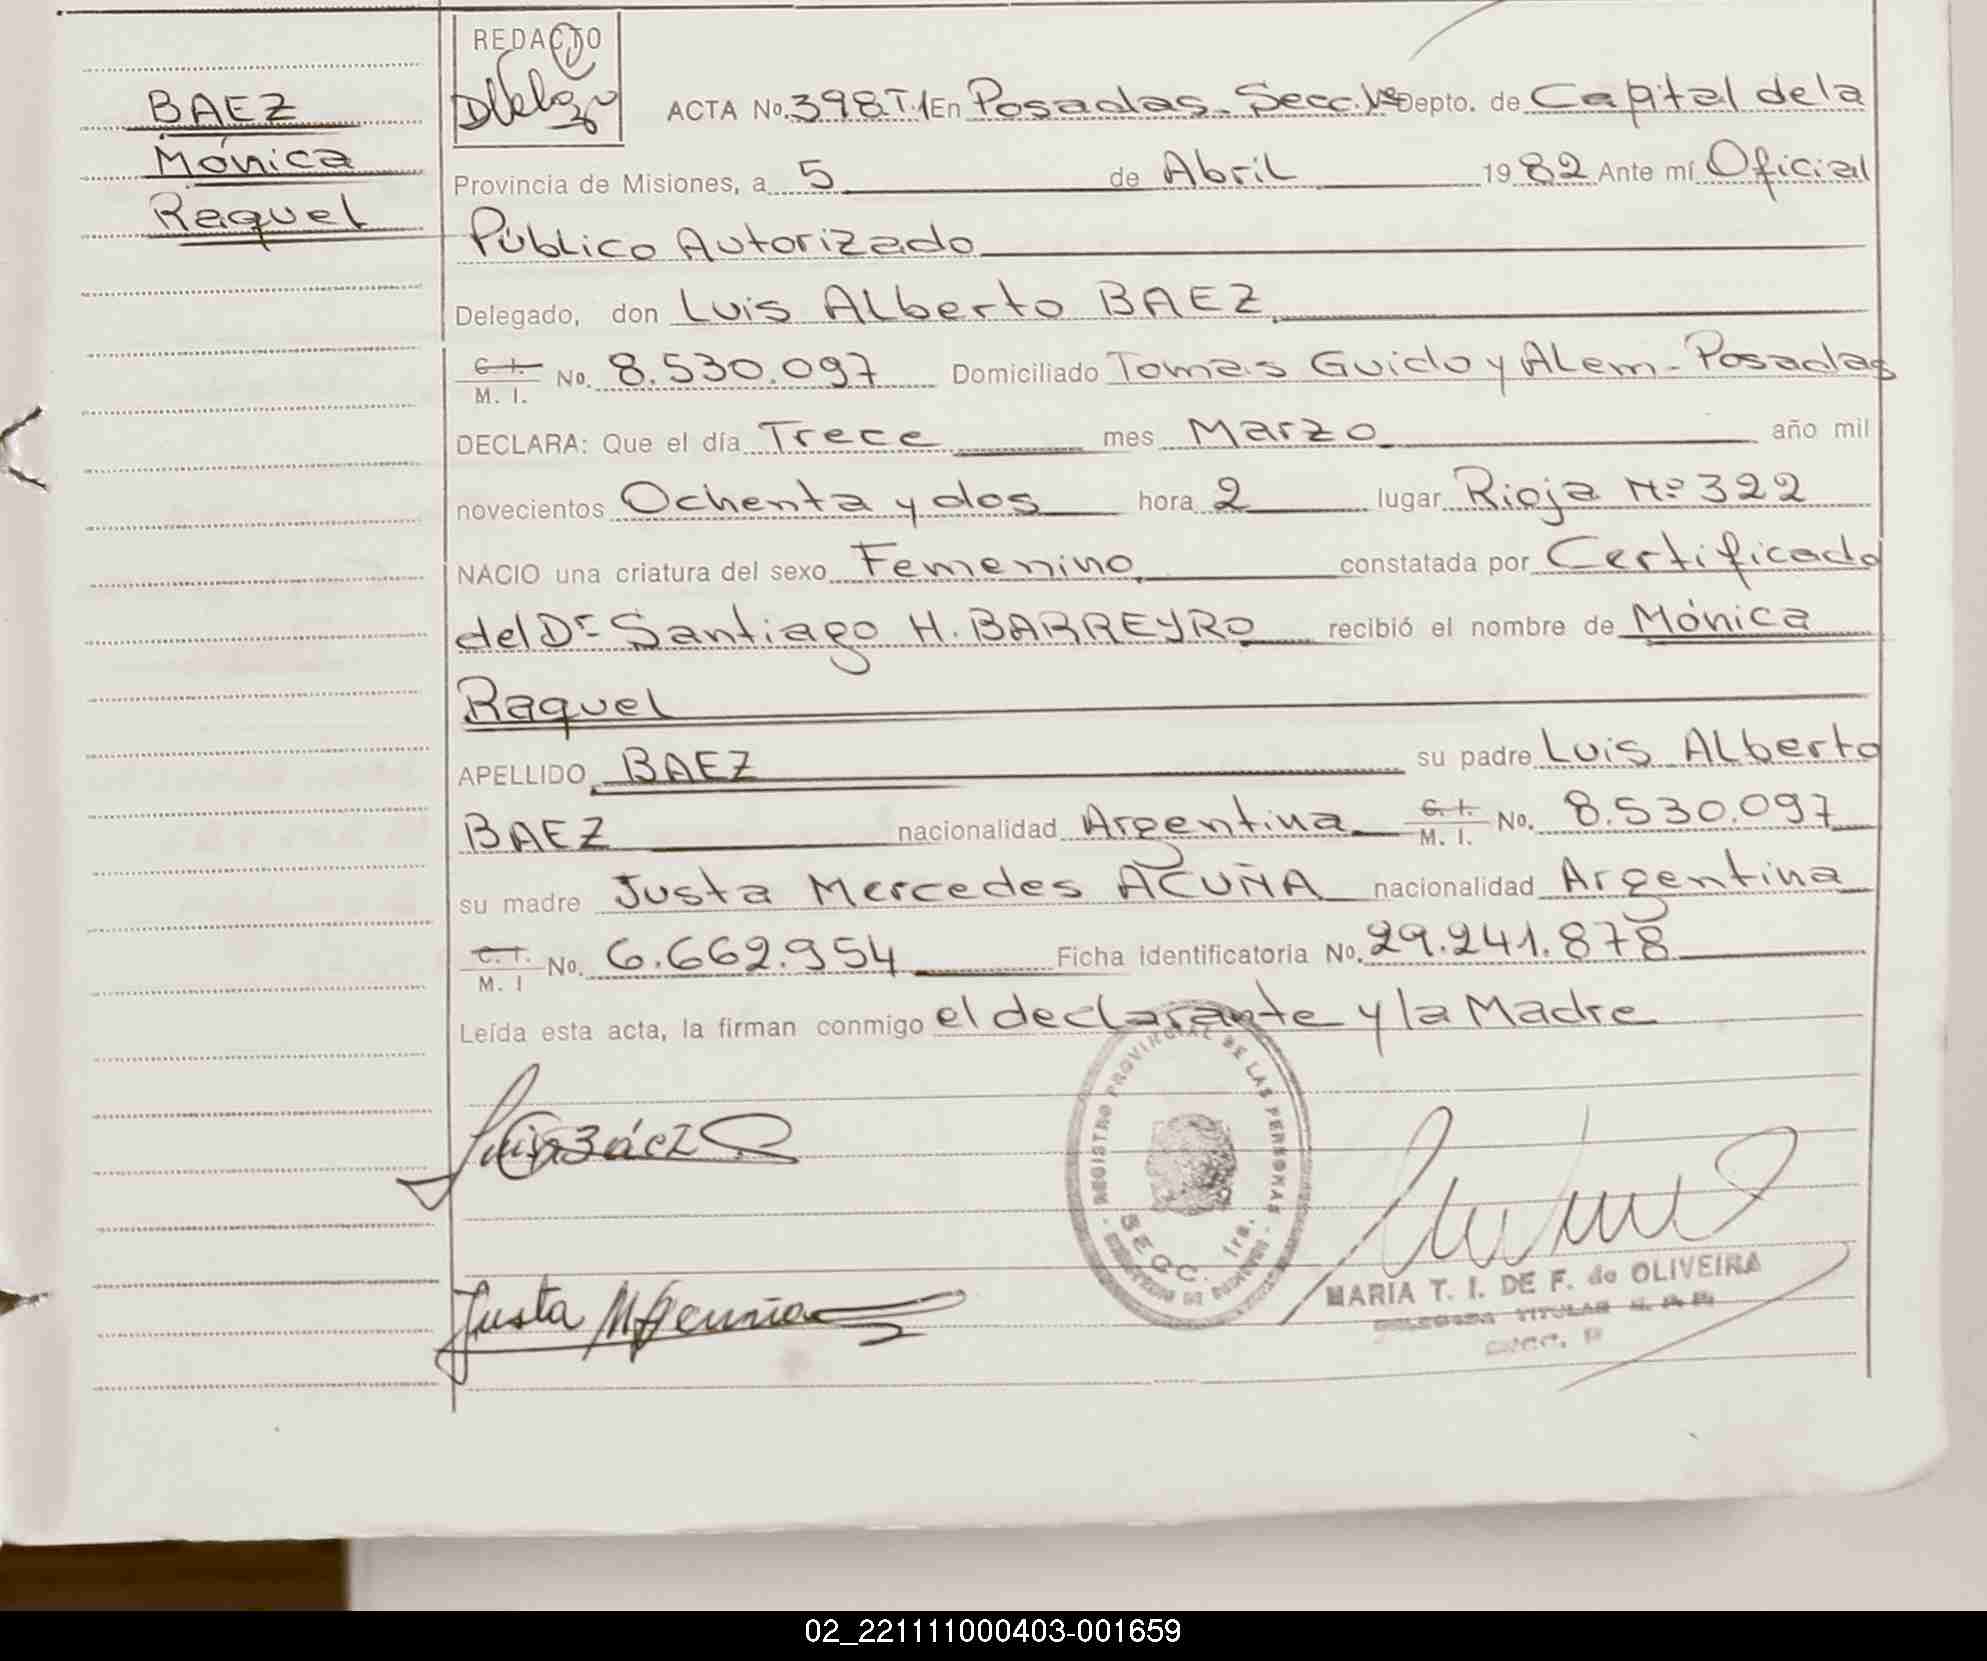 BAEZ
Mónica
Raquel
REDACTO
ACTA No. 398 T.1 En Posadas - Secc. 1ª Depto. de Capital de la
Provincia de Misiones, a 5 de Abril 1982 Ante mí Oficial
Público Autorizado
Delegado, don Luis Alberto BAEZ
C. I. M. I. No. 8.530.097 Domiciliado Tomas Guido y Alem - Posadas
DECLARA: Que el día Trece mes Marzo año mil
novecientos Ochenta y dos hora 2 lugar Rioja Nº 322
NACIO una criatura del sexo Femenino constatada por Certificado
del Dr Santiago H. BARREYRO recibió el nombre de Mónica
Raquel
APELLIDO BAEZ su padre Luis Alberto
BAEZ nacionalidad Argentina C. I. M. I. No. 8.530.097
su madre Justa Mercedes ACUÑA nacionalidad Argentina
C. I. M. I No. 6.662.954 Ficha identificatoria No. 29.241.878
Leída esta acta, la firman conmigo el declarante y la Madre
Luis Báez
REGISTRO PROVINCIAL DE LAS PERSONAS
SECC. 1ra.
Justa M Acuña
MARIA T. I. DE F. de OLIVEIRA
DELEGADA TITULAR
02_221111000403-001659